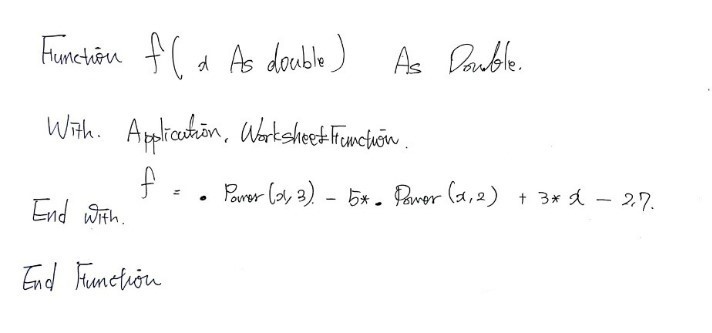 Function f( x As double ) As Double.
With. Application. WorksheetFunction.
f = . Power (x, 3) - 5*. Power (x, 2) + 3* x - 2.7.
End With.
End Function